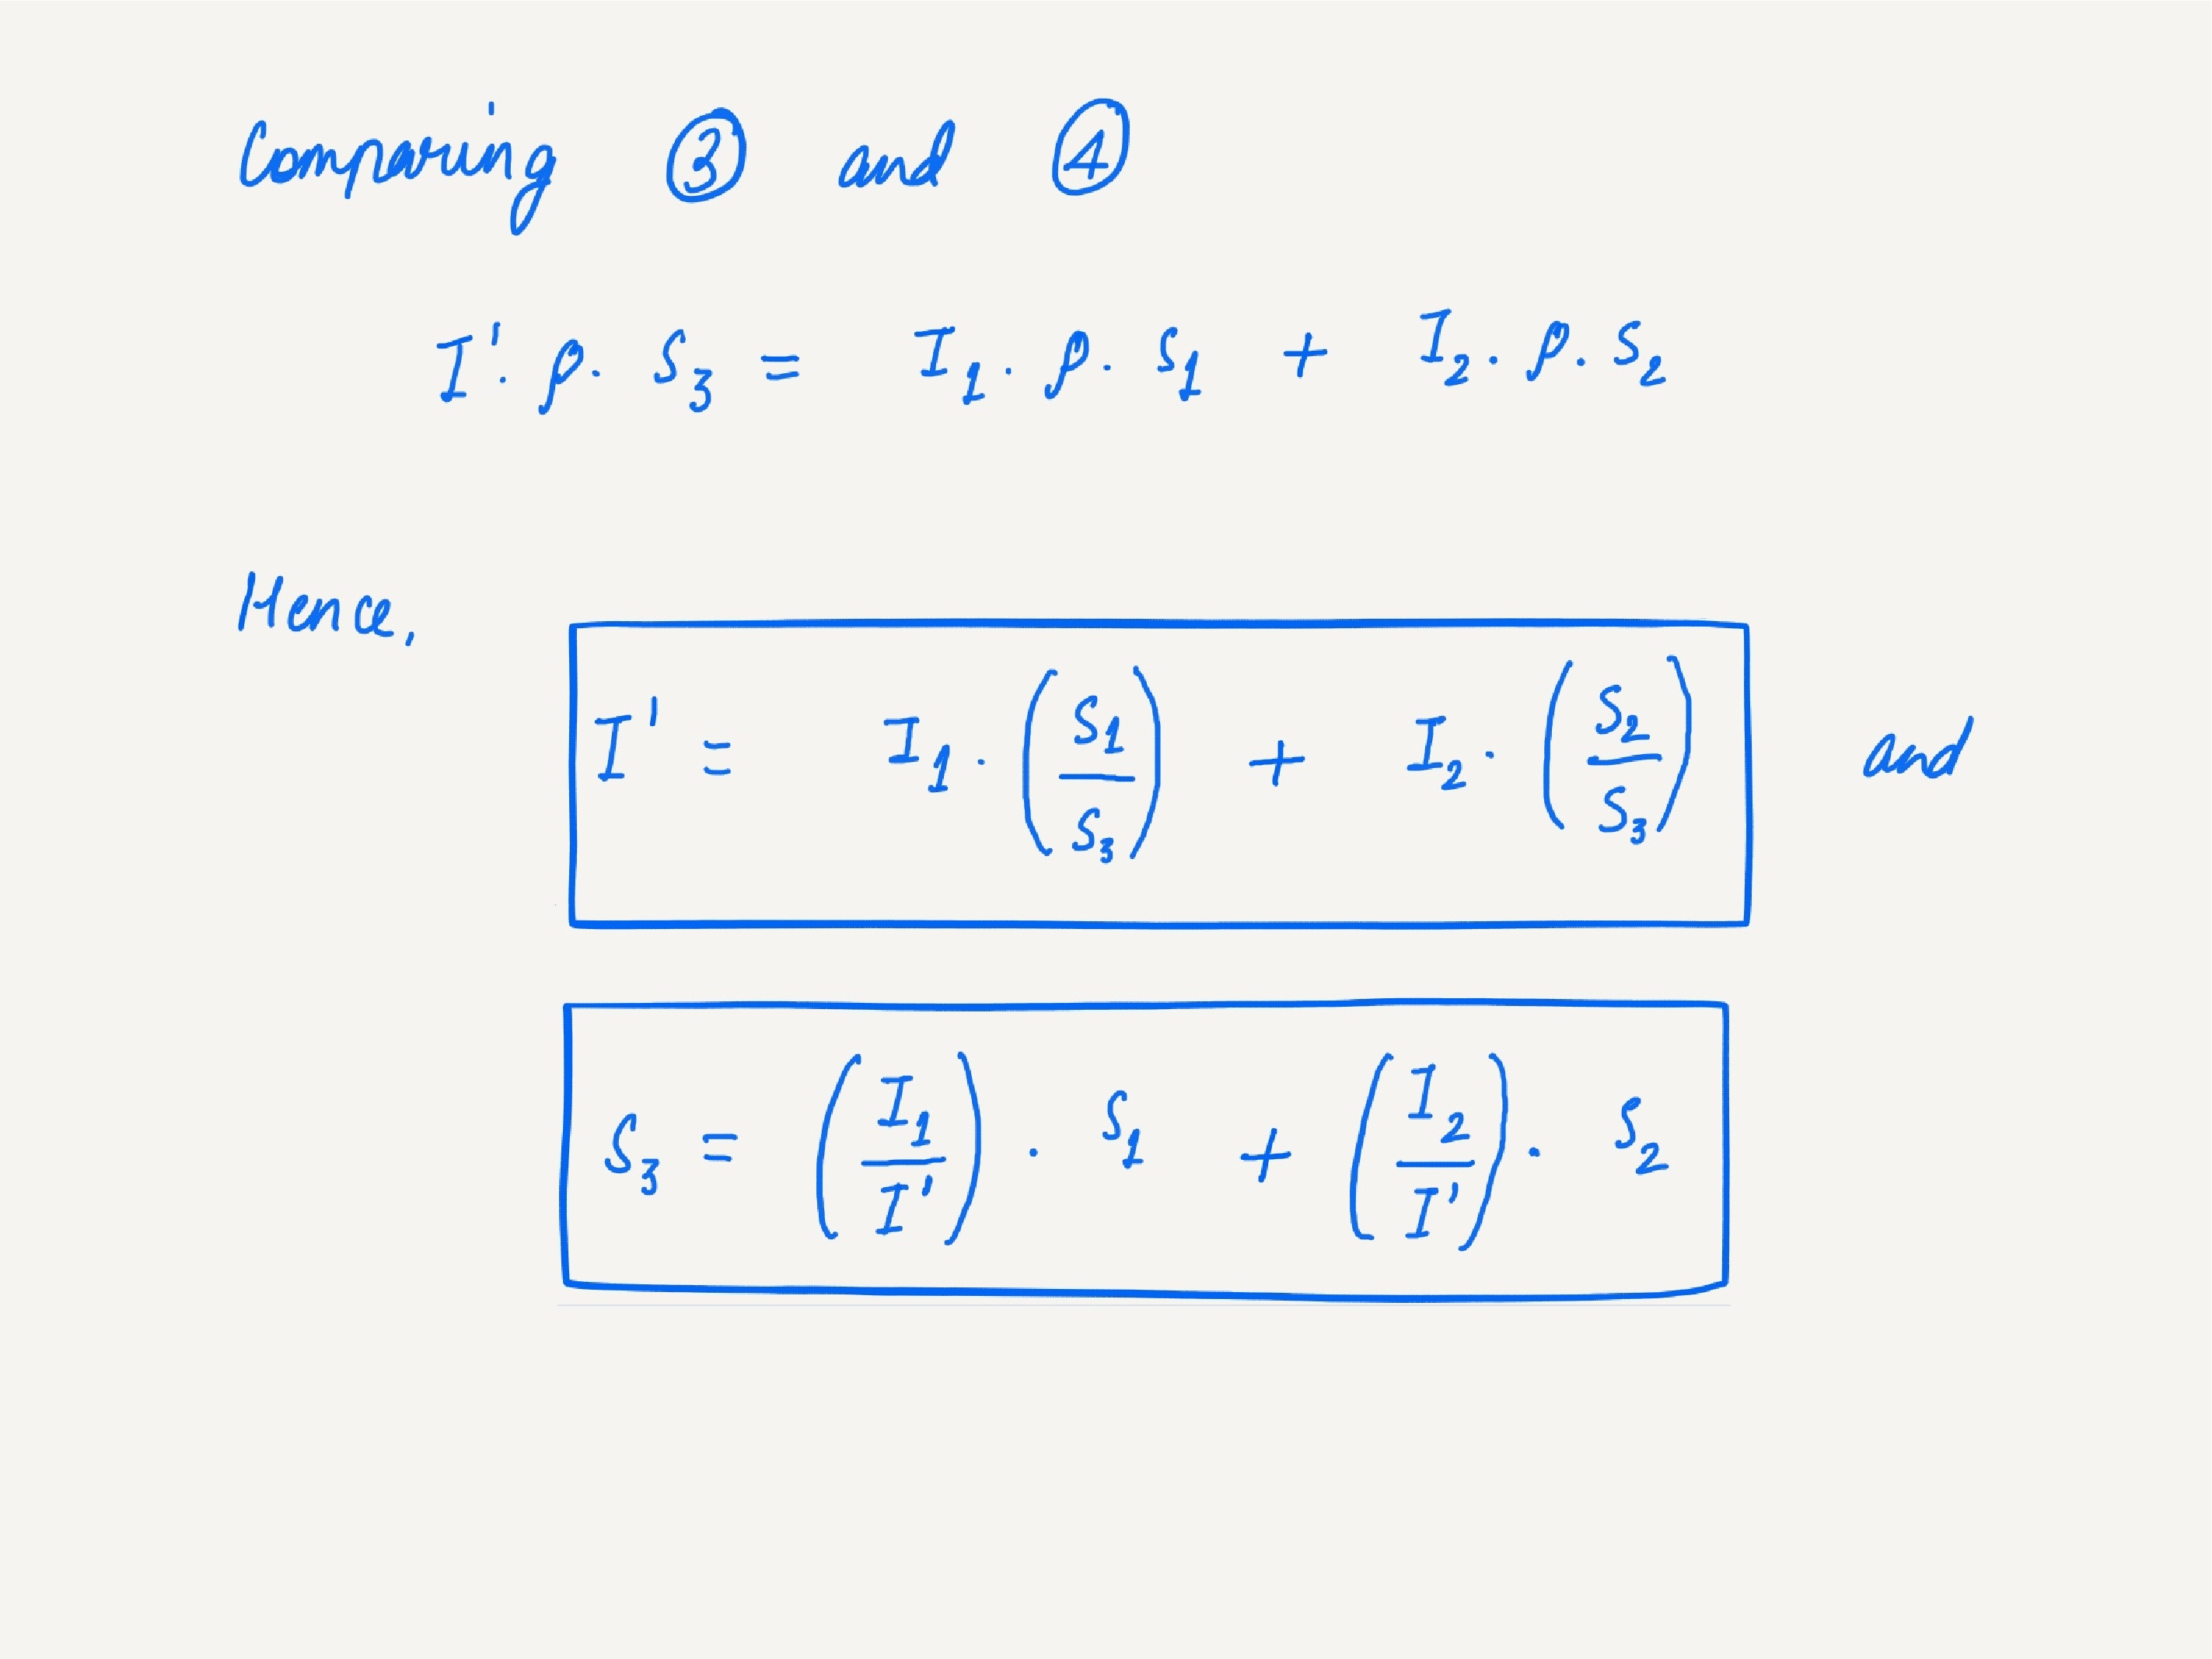 Comparing ③ and ④
I'. ρ. S₃ = I₁. ρ. S₁ + I₂. ρ. S₂
Hence,
I' = I₁. (S₁/S₃) + I₂. (S₂/S₃) and
S₃ = (I₁/I'). S₁ + (I₂/I'). S₂